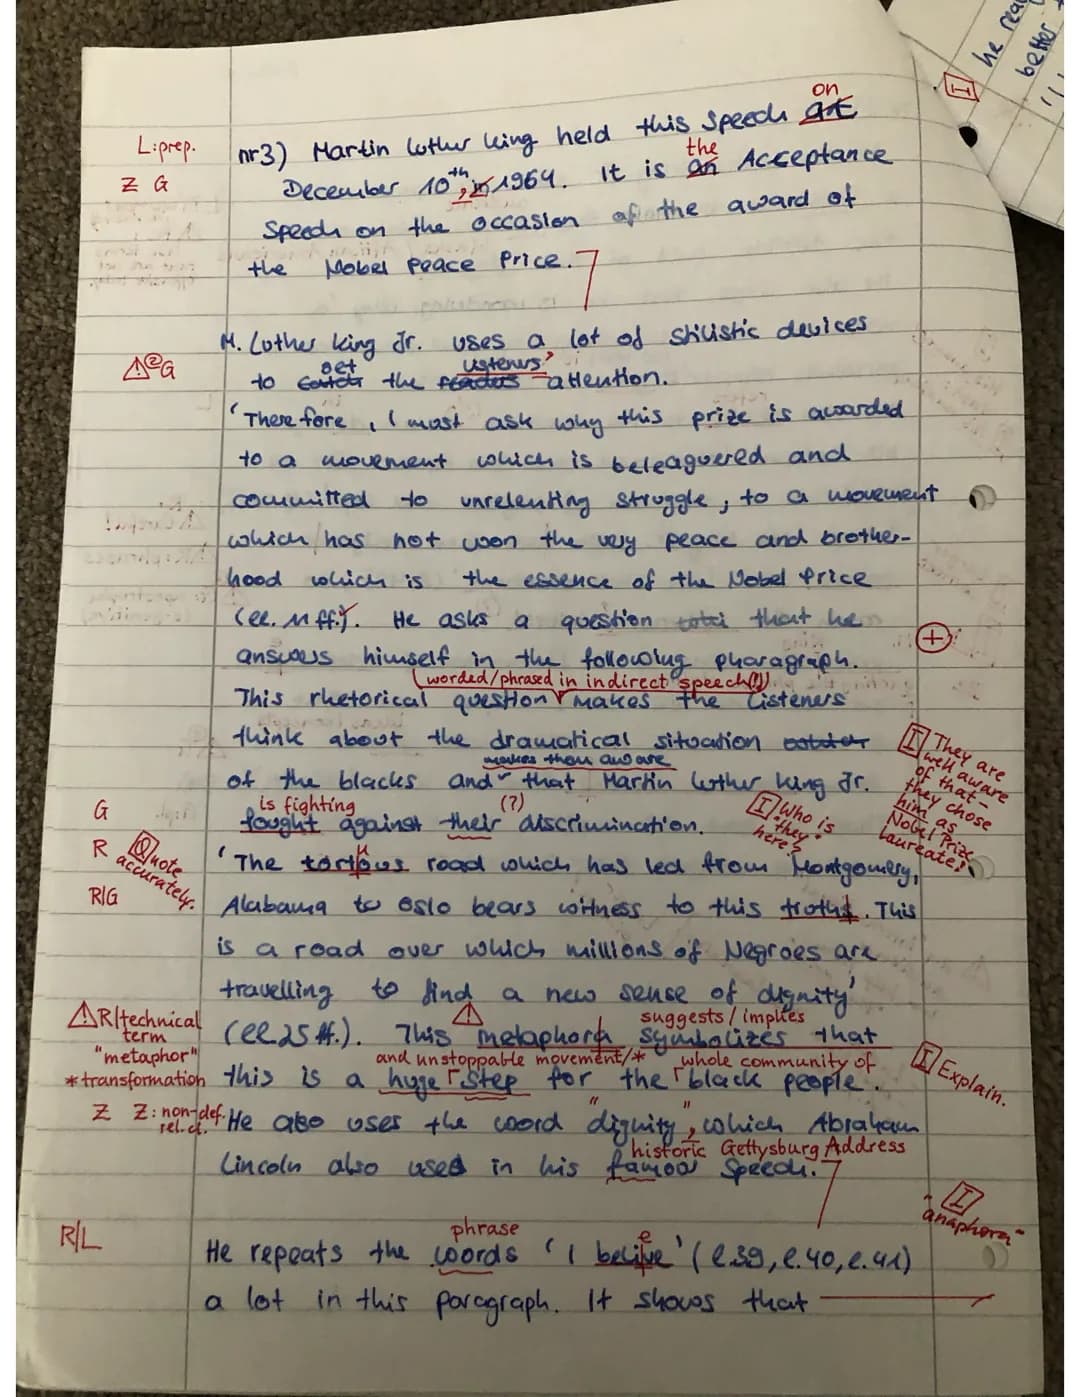 he rea
better
I
on
L:prep. nr3) Martin Luther King held this Speech at
the
Z G December 10th, in 1964. It is an Acceptance
Speech on the occasion of the award of
the Nobel Peace Price.
M. Luther King Jr. uses a lot of stilistic devices
get listeners'
②G to catch the readers attention.
'Therefore, I must ask why this prize is awarded
to a movement which is beleaguered and
committed to unrelenting struggle, to a movement
which has not won the very peace and brother-
hood which is the essence of the Nobel Price
(ll. 11 ff.). He asks a question that he
+
answers himself in the following pharagraph.
worded/phrased in indirect speech(!)
This rhetorical question makes the Listeners
think about the dramatical situation
makes them aware
of the blacks and that Martin Luther King Jr.
I They are well aware of that - they chose him as Nobel Prize Laureate!
is fighting (?)
G fought against their discrimination.
I Who is "they" here?
R Quote accurately. 'The tortous road which has led from Montgomery,
u
R/G Alabama to Oslo bears witness to this truths. This
is a road over which millions of Negroes are
travelling to find a new sense of dignity'
suggests/implies
R/technical term "metaphor" (ll. 25 ff.). This metaphora symbolizes that
and unstoppable movement/* whole community of
*transformation this is a huge step for the black people.
I Explain.
Z Z: non-def. rel.cl. He also uses the word "dignity", which Abraham
historic Gettysburg Address
Lincoln also used in his famous Speech.
I "anaphora"
phrase e
R/L He repeats the words 'I belive' (l.39, l.40, l.41)
a lot in this paragraph. It shows that